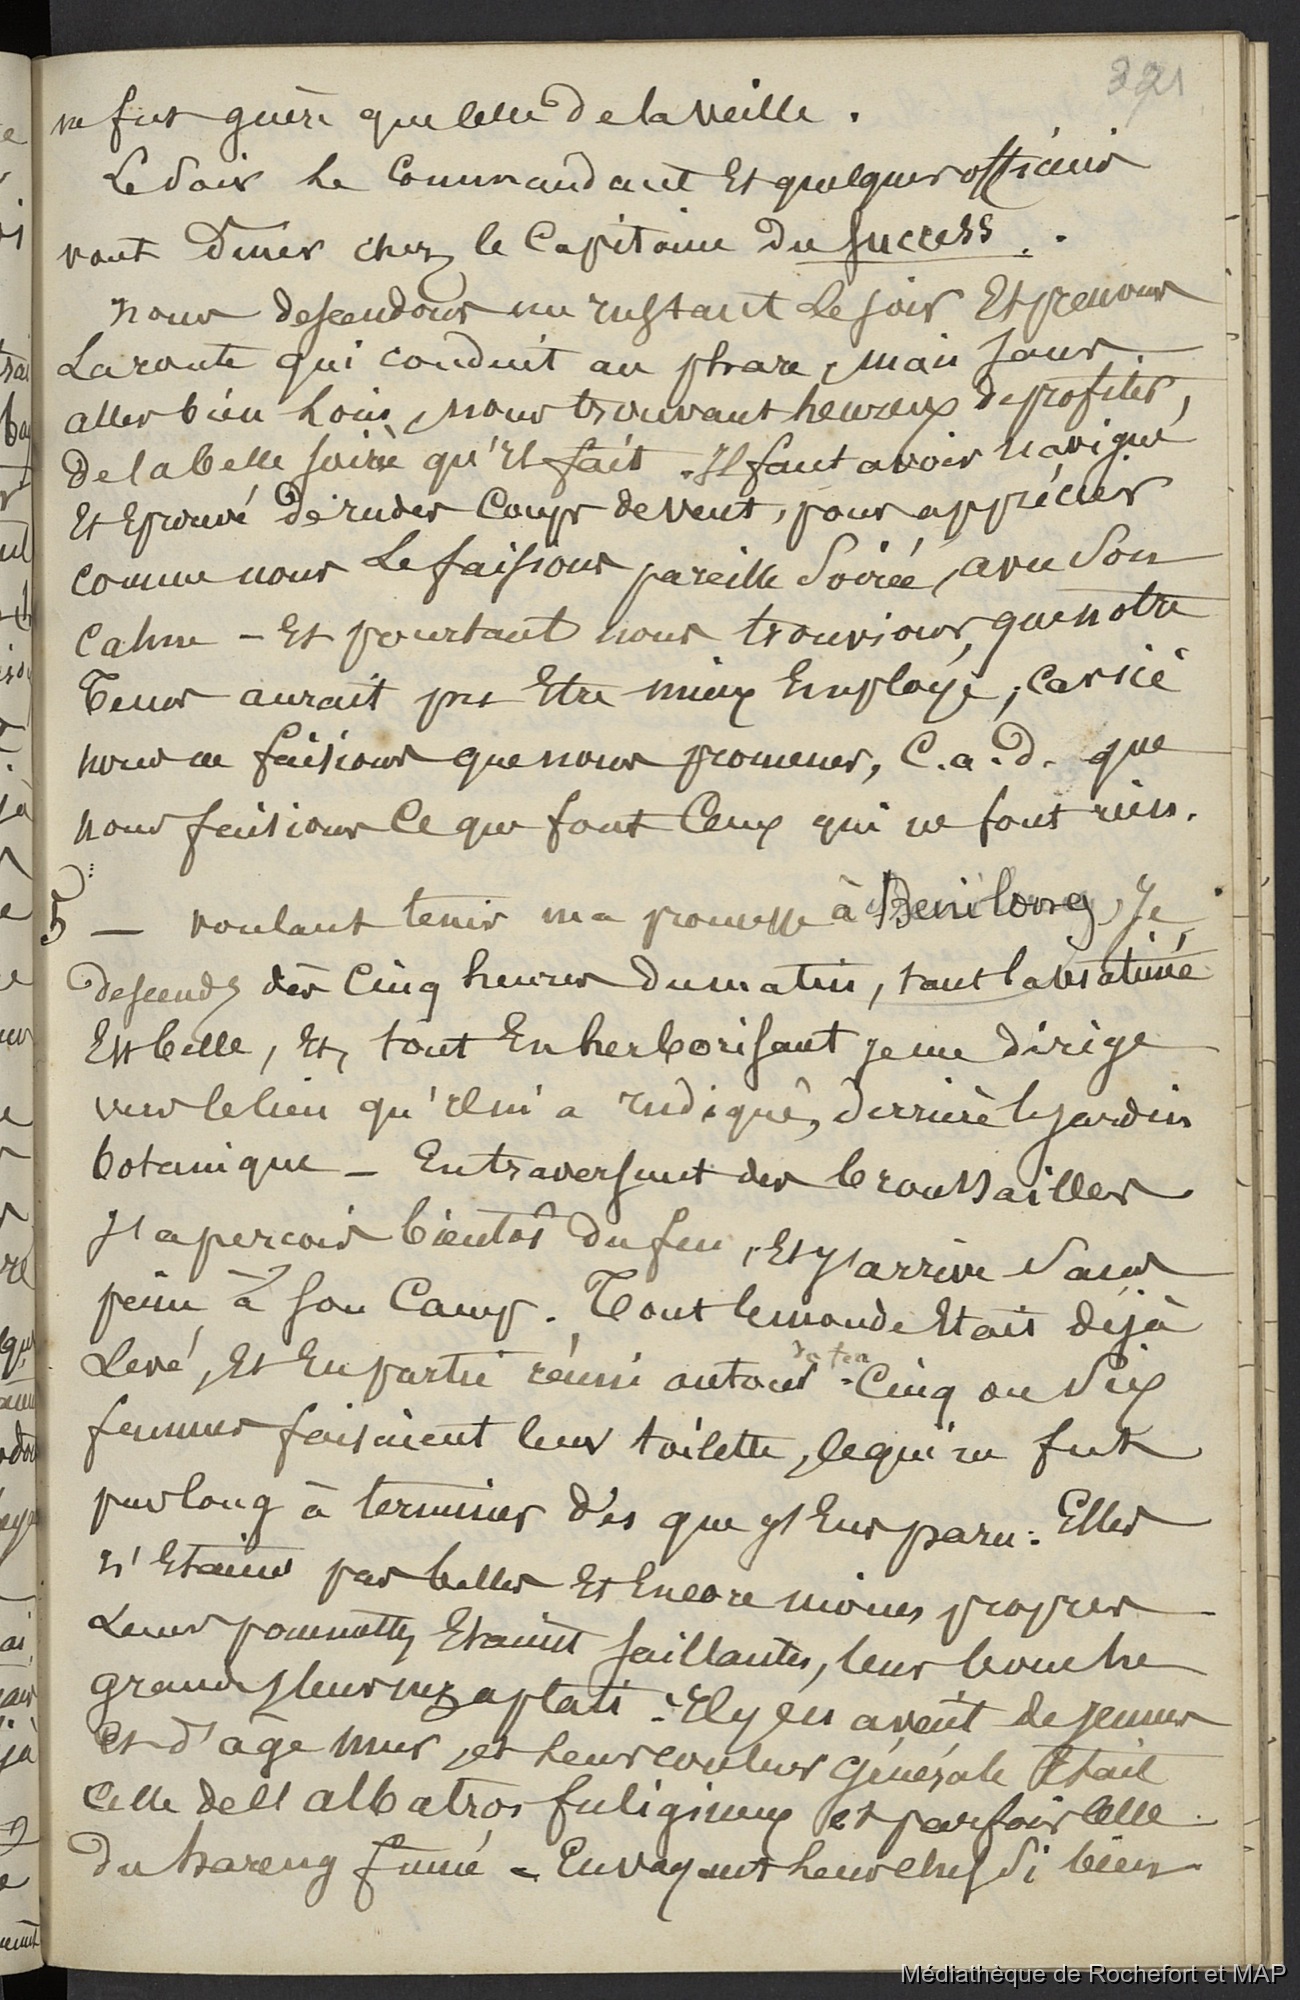 321
ne fut guère que celle de la veille.
Le soir le Commandant et quelques officiers
vont diner chez le Capitaine du Success.
nous descendons un instant le soir et prenons
la route qui conduit au phare, mais sans
aller bien loin, nous trouvant heureux de profiter,
de la belle soirée qu'il fait. Il faut avoir navigué
et eprouvé de rudes coups de vent, pour apprécier
comme nous le faisions pareille soirée, avec son
calme – Et pourtant nous trouvions, que notre
tems aurait pu être mieux employé, car ici
nous ne faisions que nous promener, C.a.d. que
nous faisions ce que font ceux qui ne font rien.
5 — voulant tenir ma promesse à Benilong, je
descends dès cinq heures du matin, tant la matinée
est belle, et, tout en herborisant je me dirige
vers le lieu qu'il m'a indiqué, derrière le jardin
botanique – En traversant des broussailles
j'apercois bientôt du feu, et j'arrive sans
peine à son camp. Tout le monde était déjà
levé, et en partie réuni autour. Cinq ou six
du feu
femmes faisaient leur toilette, ce qui ne fut
pas long à terminer dès que j'eus paru : Elles
n'étaient pas belles et encore moins propres
Leurs pommettes étaient saillantes, leur bouche
grande, leur nez aplati. Il y en avait de jeunes
et d'âge mur, et leur couleur générale était
celle de l'albatros fuligineux et parfois celle
du hareng fumé – En voyant leur chef si bien
Médiathèque de Rochefort et MAP